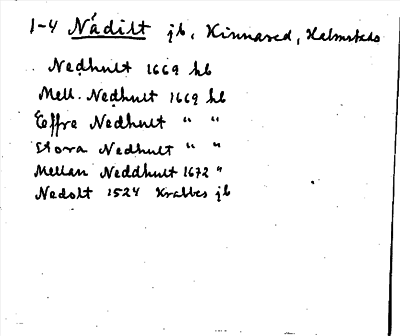 1-4 Nådilt jb, Kinnared, Halmstads
Nedhult 1669 hb
Mell. Nedhult 1669 hb
Effra Nedhult " "
Stora Nedhult " "
Mellan Neddhult 1672 "
Nedolt 1524 Krabbes jb